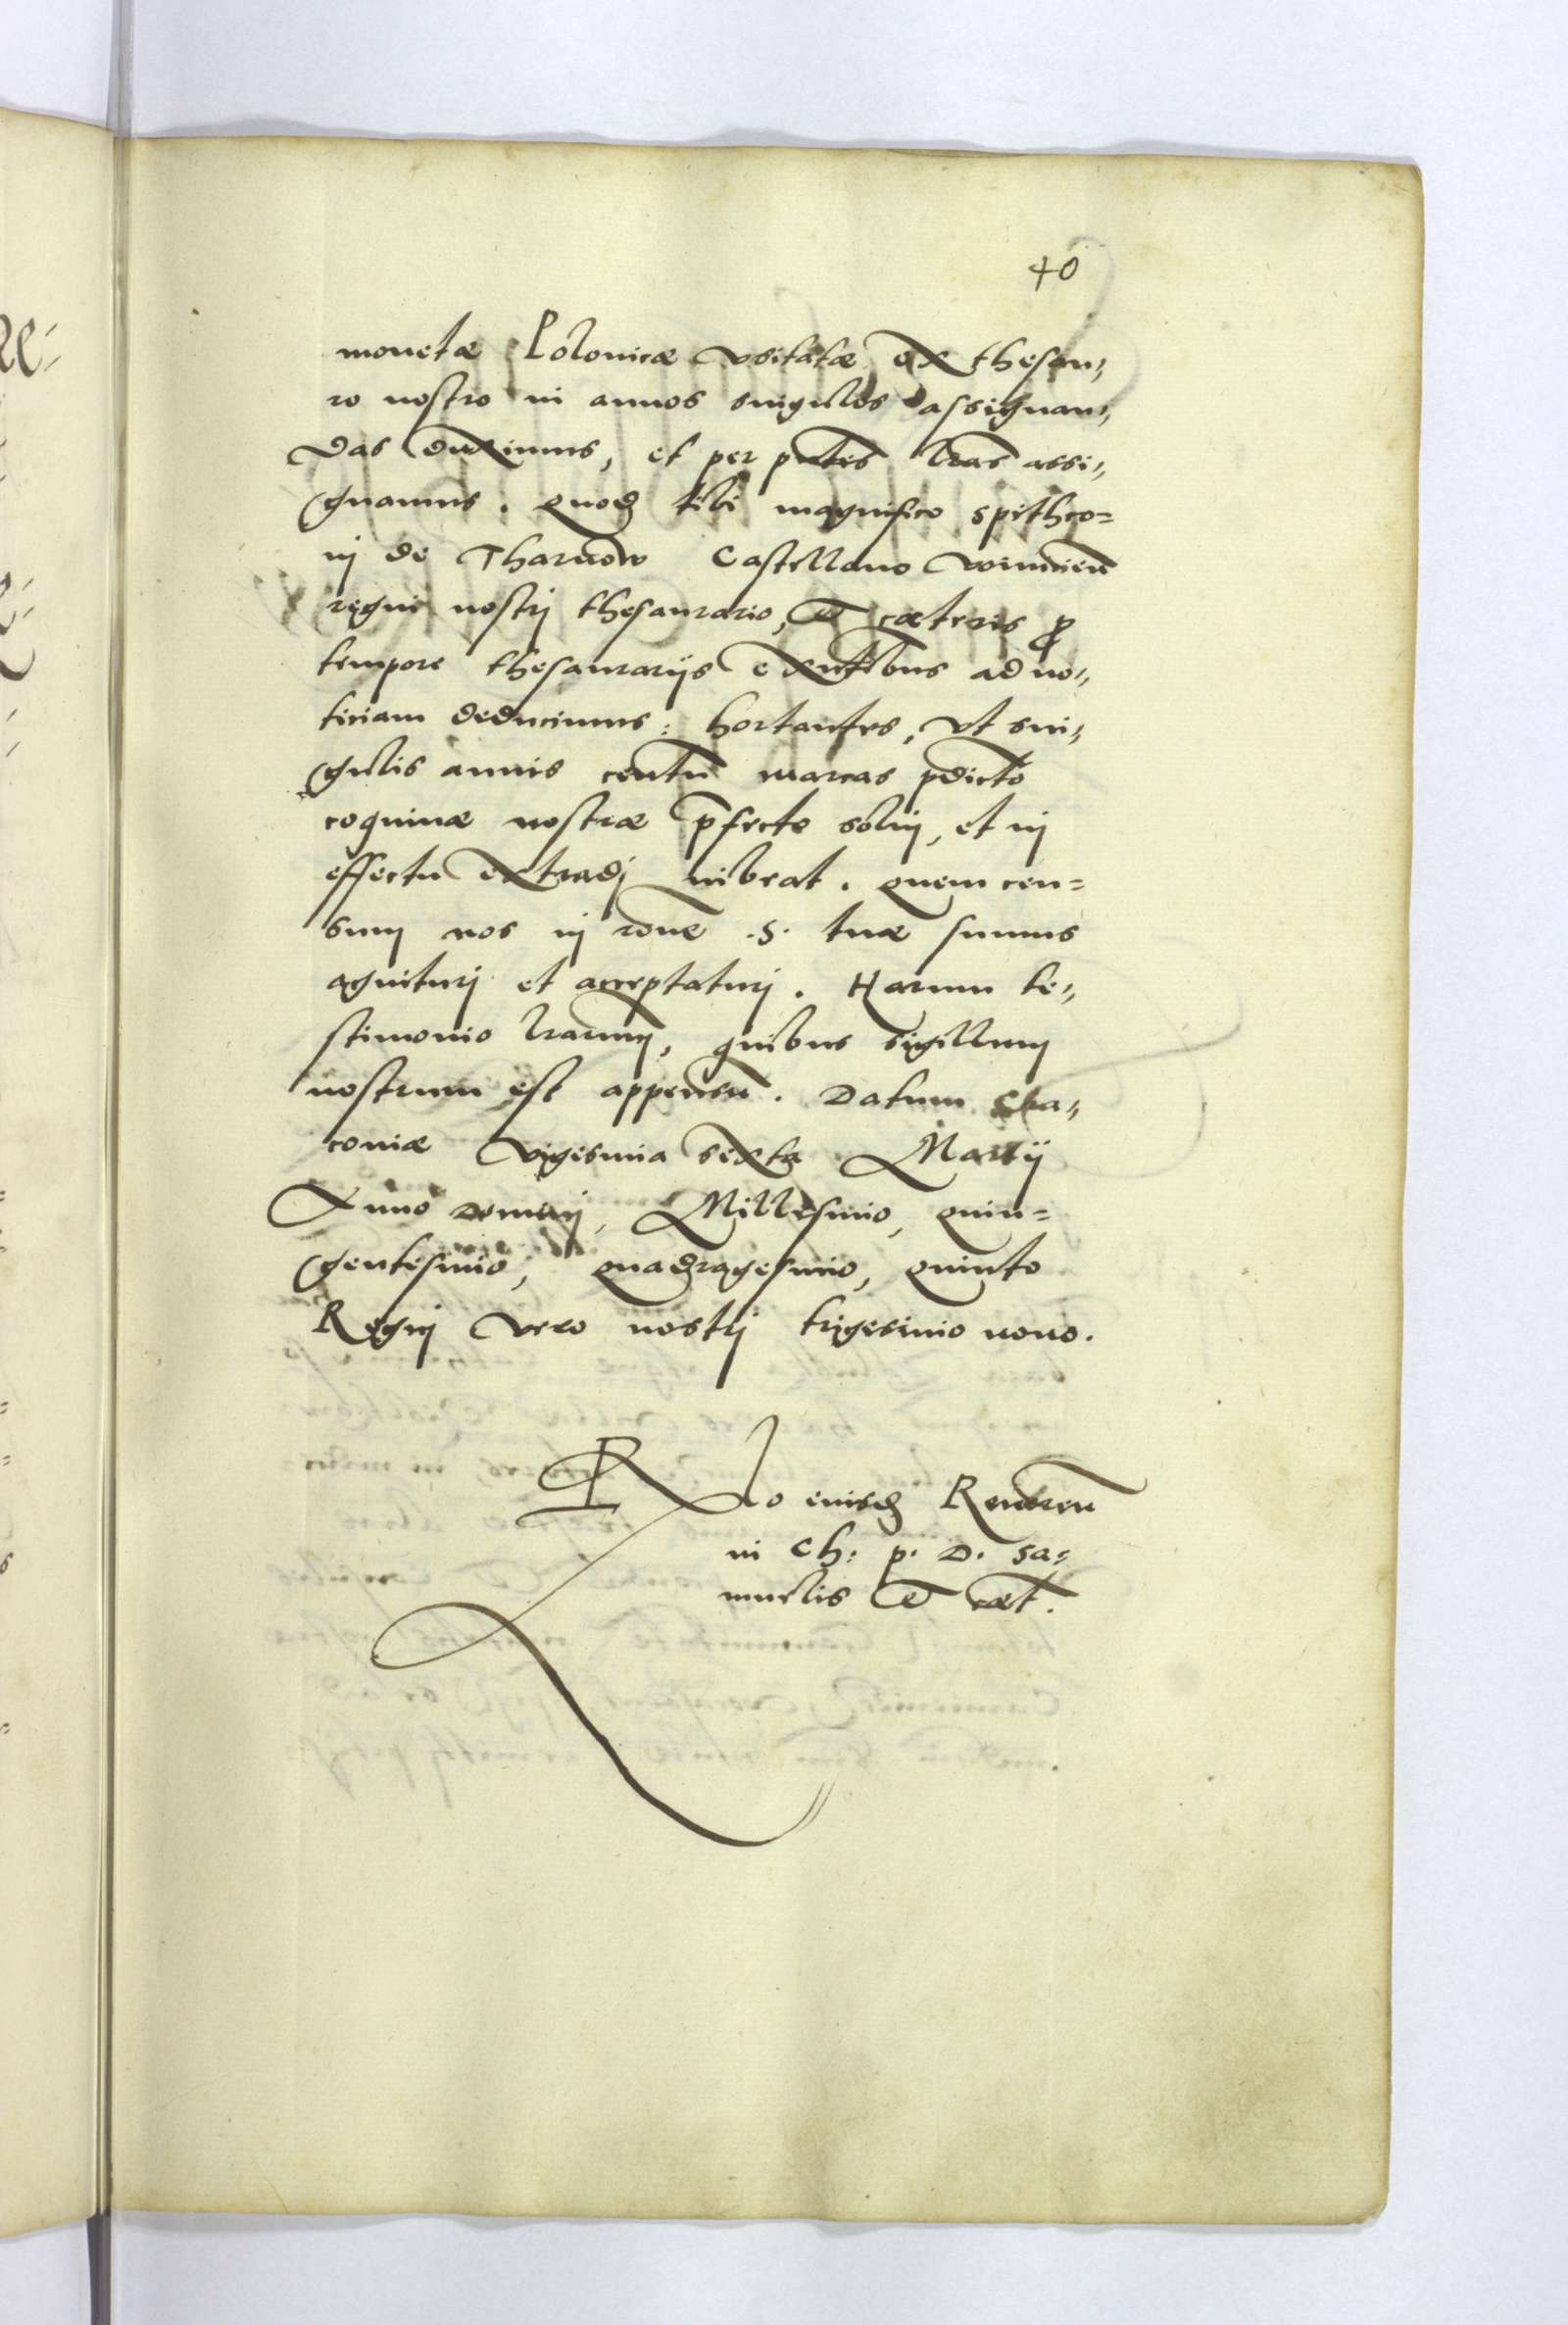 40
monetæ Polonicæ vsitatæ ex thesau,,
ro nostro in annos singulos assignan,,
das duximus, et per pntes lras assi,,
gnamus. quod tibi magnifico spithco=
nj de Tharnow Castellano voinicien
regni nostrj thesaurario, & cæteris p
tempore thesaurarijs exntibus ad no,,
ticiam deducimus: hortantes, vt sin,
gulis annis centu marcas pdicto
coquinæ nostræ pfecto soluj, et in
effectu extradj iubeat. quem cen=
sum nos in rone .S. tuæ sumus
agniturj et acceptaturj. Harum te,,
stimonio lrarum, quibus sigillum
nostrum est appensu. Datum Cra,,
coniæ vigesima sexta Martij
Anno Dominj, Millesimo, quin=
gentesimo, quadragesimo, quinto
Regnj vero nostrj trigesimo nono.
Rlo eiusd Reueren
in Ch: p. D. Sa=
muelis & cæt.